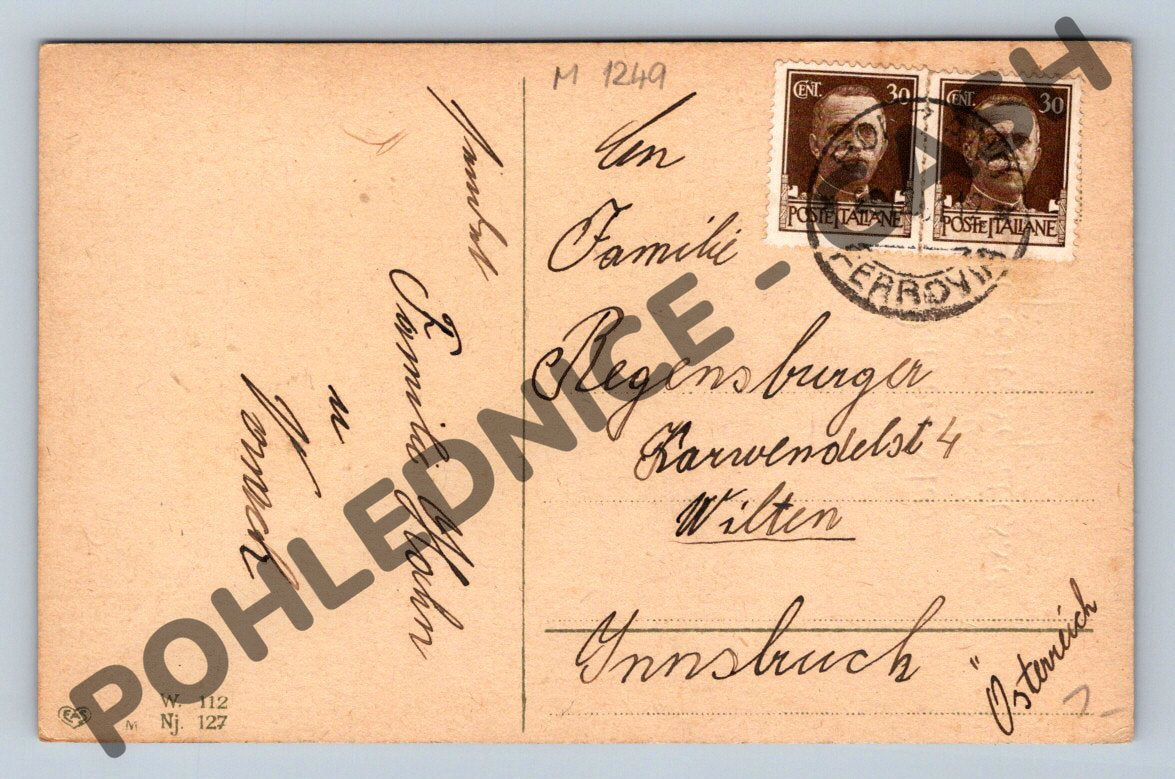 M 1249
An
Familie
Regensburger
Karwendelst 4
Wilten
Innsbruck
Österreich
Familie
u
CENT. 30
POSTE ITALIANE
CENT. 30
POSTE ITALIANE
FERROVIA
EAS
W. 112
M Nj. 127
POHLEDNICE - CASH